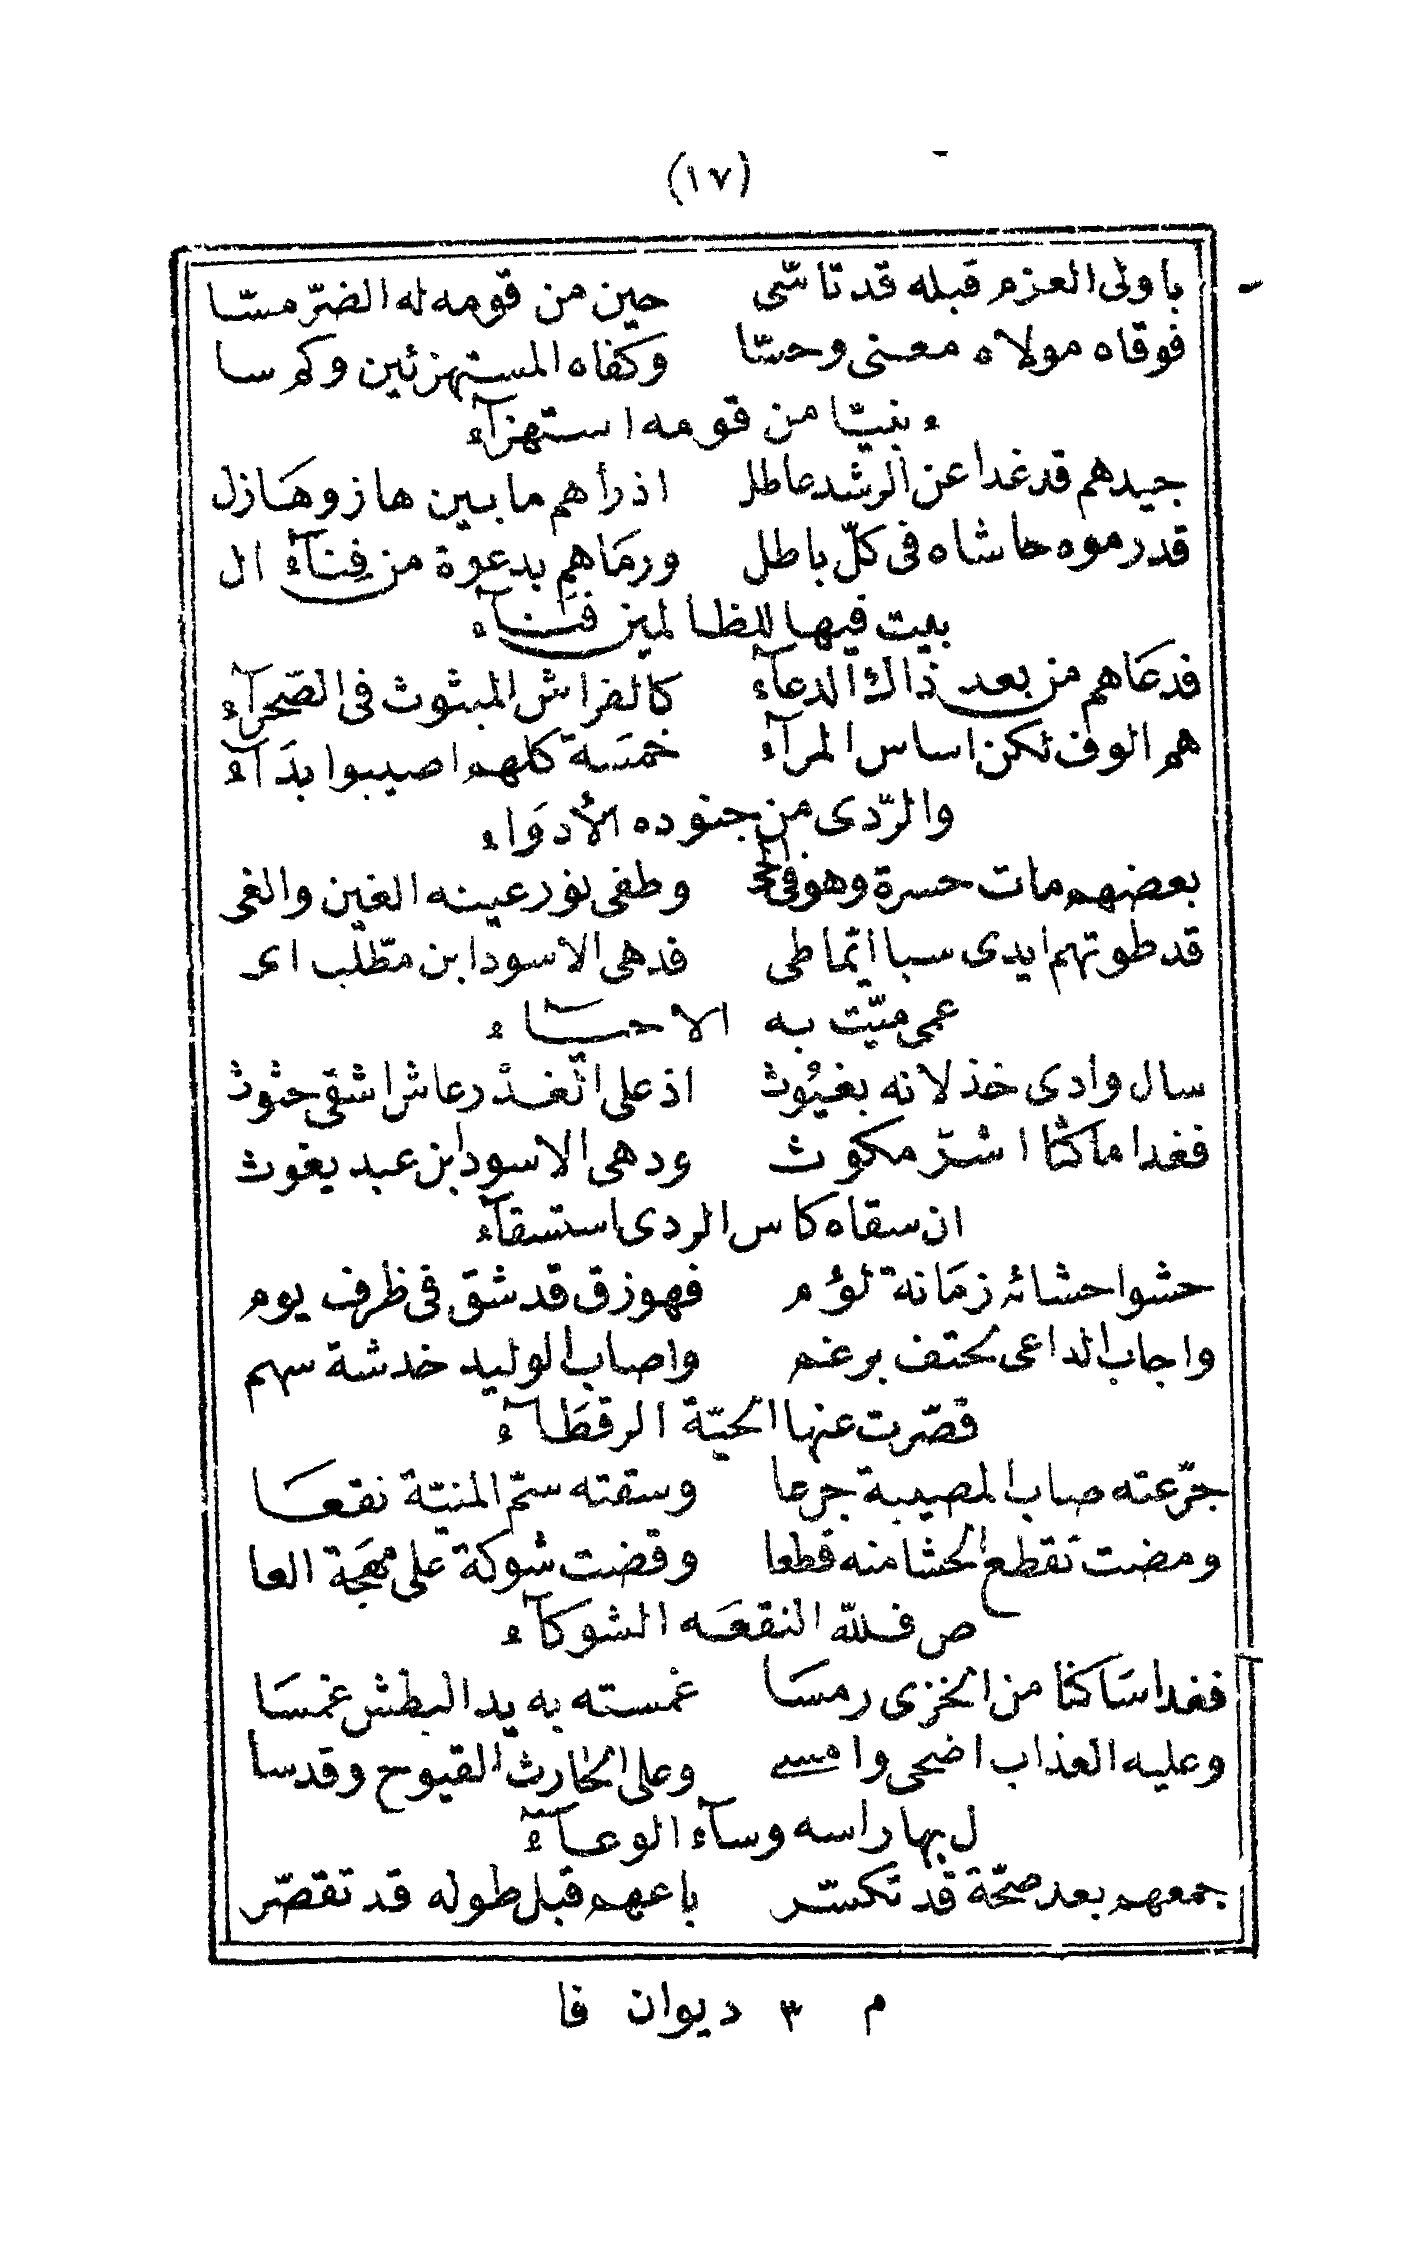 (١٧)
باولى العزم قبله قد تاسّى حين من قومه له الضرّ مسّا
فوقاه مولاه معنى وحسّا وكفاه المستهزئين وكم سا
ء نبيّا من قومه استهزآء
جيدهم قد غدا عن الرشد عاطل اذ رأهم ما بين هاز وهَازل
قد رموه حاشاه فى كلّ باطل ورمَاهم بدعوة من فِنآء ال
بيت فيها للظالمين فنآء
فدعَاهم من بعد ذاك الدعآء كالفراش المبثوث فى الصّحرآء
هم الوف لكن اساس المرآء خمسَة كلهم اصيبوا بدَآء
والرّدى من جنوده الأدوَاء
بعضهم مات حسرة وهو فى وطفى نور عينه الغين والغى
قد طوتهم ايدى سبا ايّما طى فدهى الاسود ابن مطّلب اى
عمى ميّت به الاحسآء
سال وادى خذلانه بغيُوث اذ على الّغدْر عاش اشقى حثوث
فغدا ماكثا اشرّ مكوث ودهى الاسود ابن عبد يغوث
ان سقاه كاس الردى استسقآء
حشوا حشائه زمَانة لؤم فهو زق قد شقّ فى ظرف يوم
واجاب الداعى لحتف برغم واصاب الوليد خدشة سهم
قصّرت عنها الحيّة الرقطَآء
جرّعته صاب المصيبة جرعا وسقته سمّ المنيّة نقعَا
ومضت تقطع الحشا منه قطعا وقضت شوكة على مهجَة العا
ص فللّه النقعَه الشوكآء
فغدا سَاكنا من الخزى رمسَا غمسته به يد البطش غمسَا
وعليه العذاب اضحى وامسى وعلى الحارث القيوح وقد سا
ل بها راسه وسآء الوعآء
جمعهم بعد صحّة قد تكسّر باعهم قبل طوله قد تقصّر
م ٣ ديوان فا